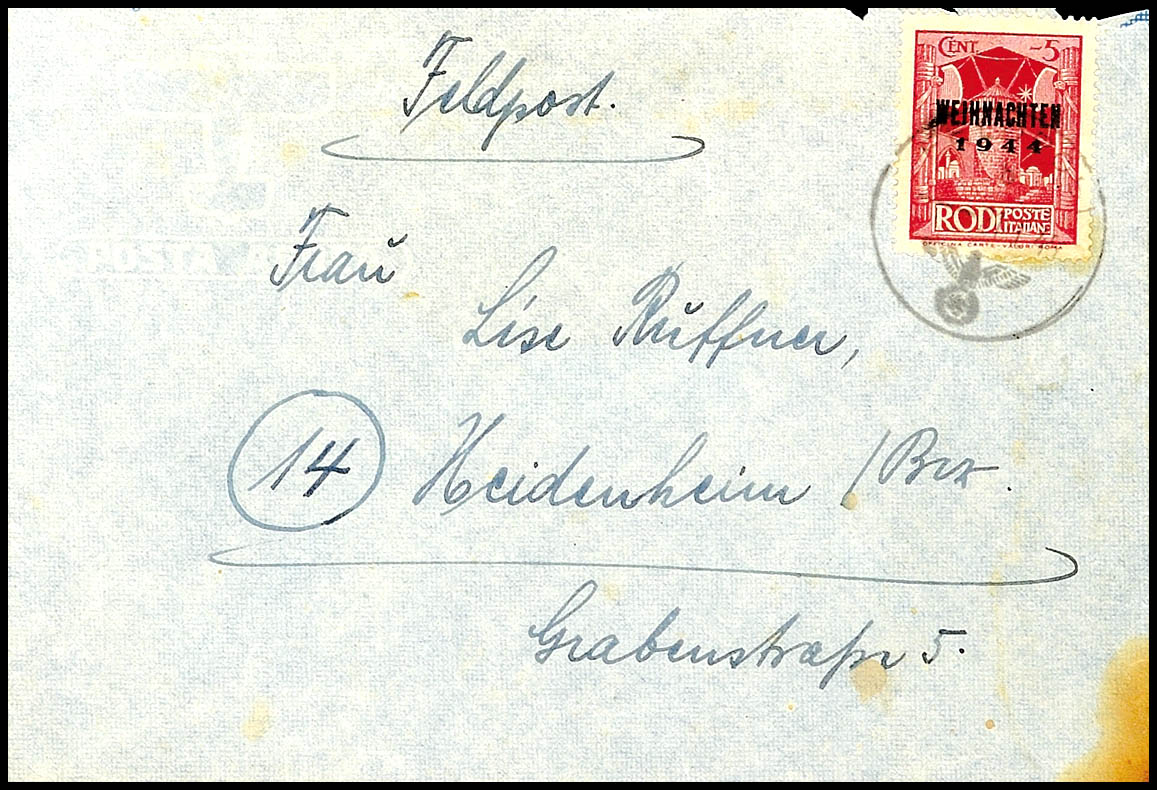 Feldpost.
CENT. 5
WEIHNACHTEN
1944
RODI POSTE
ITALIANE
OFFICINA CARTE-VALORI ROMA
Frau
Lise Ruffner,
14 Heidenheim /Brz.
Grabenstraße 5.